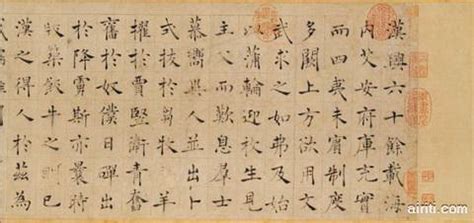 漢興六十餘載海
內艾安府庫充實
而四夷未賓制度
多闕上方欲用文
武求之如弗及始
以蒲輪迎枚生見
主父而歎息群士
慕嚮異人並出卜
式拔於芻牧弘羊
擢於賈豎衛青奮
奮於奴僕日磾出
於降虜斯亦曩時
版築飯牛之朋已
漢之得人於茲為
ainti.com